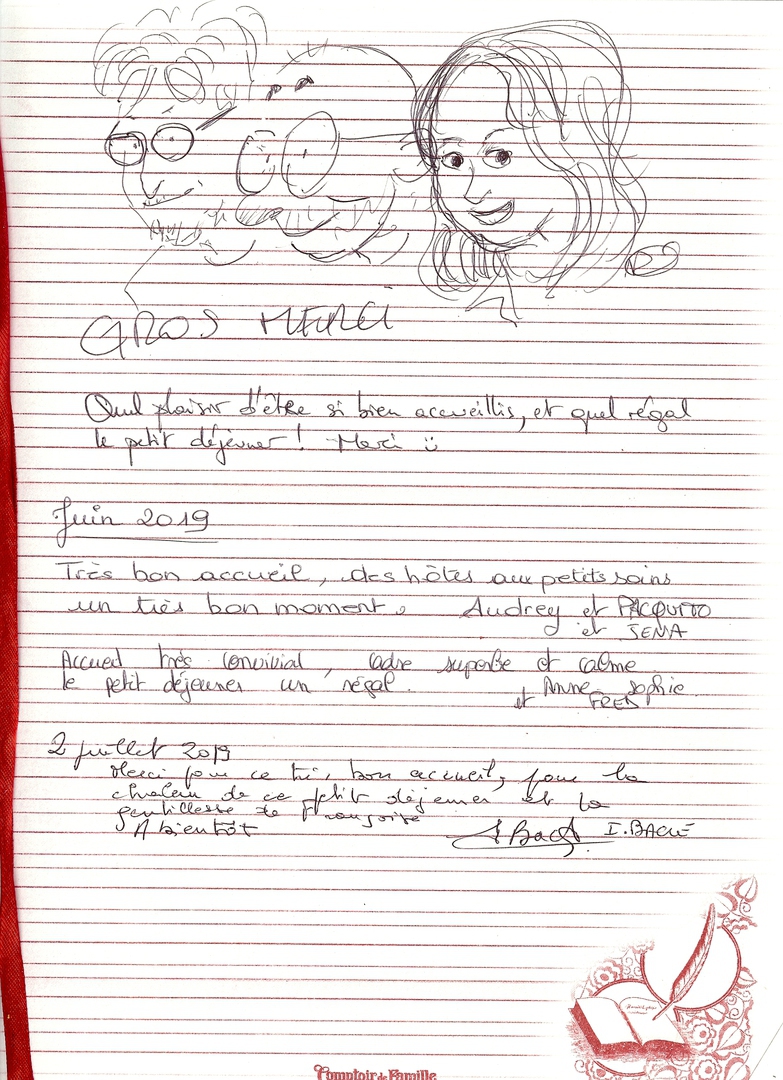 GROS MERCI
Quel plaisir d'être si bien accueillis, et quel régal
le petit déjeuner ! Merci ü
Juin 2019
Très bon accueil, des hôtes aux petits soins
un très bon moment. Audrey et PACQUITO
et SENA
Accueil très convivial, cadre superbe et calme.
le petit déjeuner un régal.
et Anne Sophie
FRED
2 juillet 2019
Merci pour ce très bon accueil, pour la
chaleur de ce petit déjeuner et la
gentillesse de Françoise
A bientôt
I. BACLÉ
Comptoir de Famille